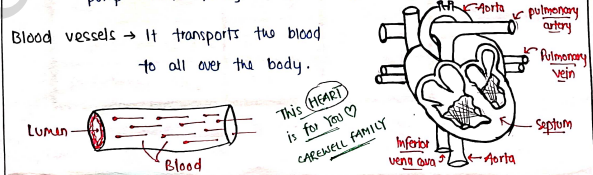 Blood vessels → It transports the blood
to all over the body.
Lumen
Blood
This HEART
is for You ♡
CAREWELL FAMILY
Aorta
pulmonary
artery
Pulmonary
vein
Septum
Inferior
vena cava
Aorta